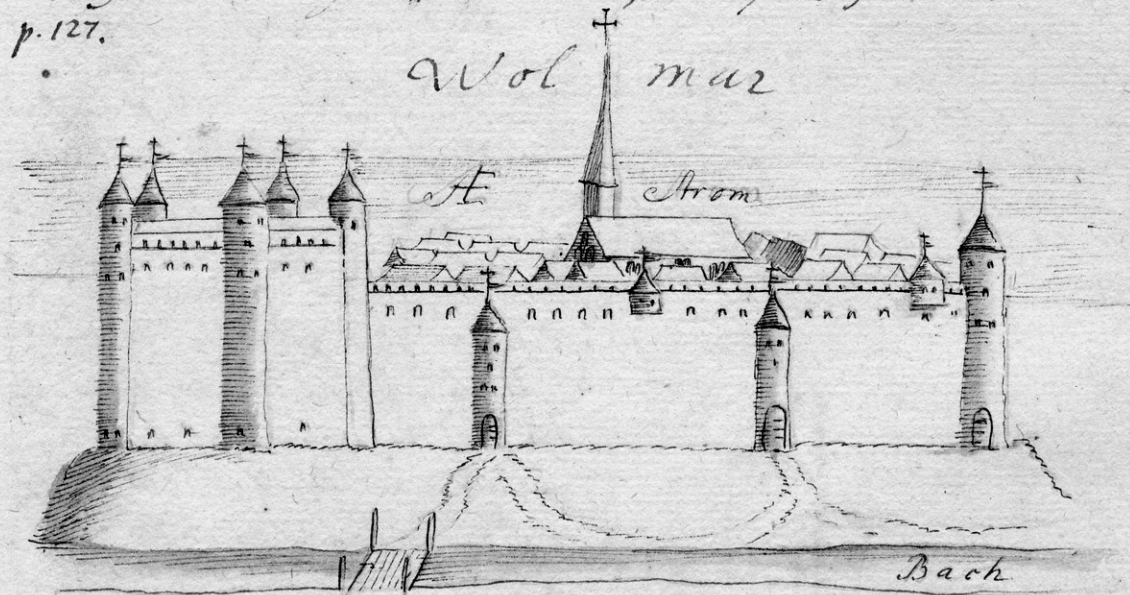 p. 127.
Wol mar
Æ Strom
Bach